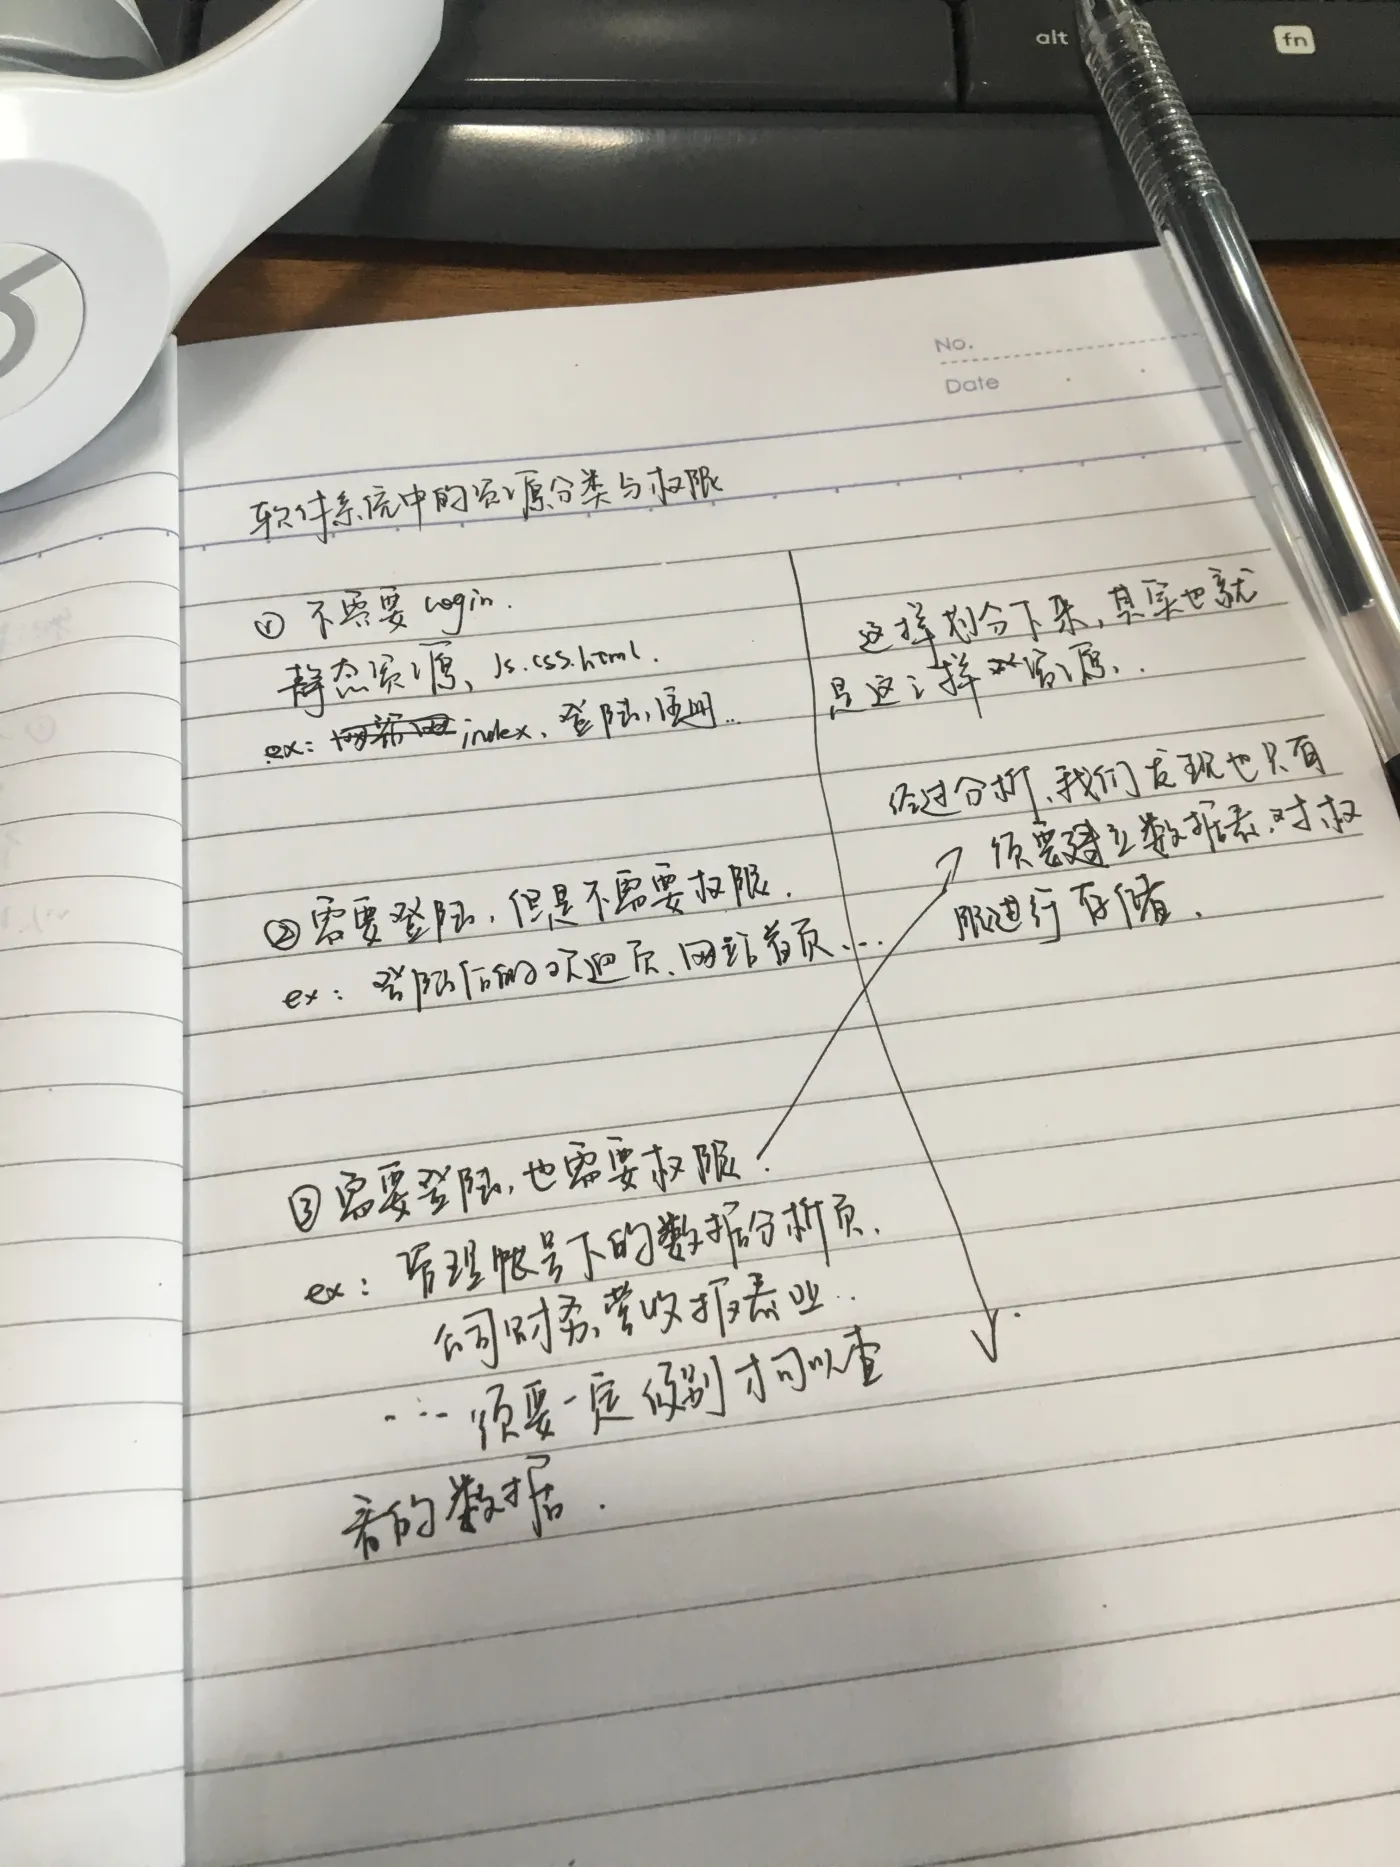 alt
fn
No.
Date
软件系统中的资源分类与权限
① 不需要 login.
静态资源、js.css.html.
ex: index、登陆,注册...
② 需要登陆,但是不需要权限.
ex: 登陆后的欢迎页、网站首页...
③ 需要登陆,也需要权限.
ex: 管理帐号下的数据分析页.
公司财务、营收报表业..
...须要一定级别才可以查
看的数据.
这样划分下来,其实也就
是这3样资源..
经过分析、我们发现也只有
须要建立数据表、对权
限进行存储.